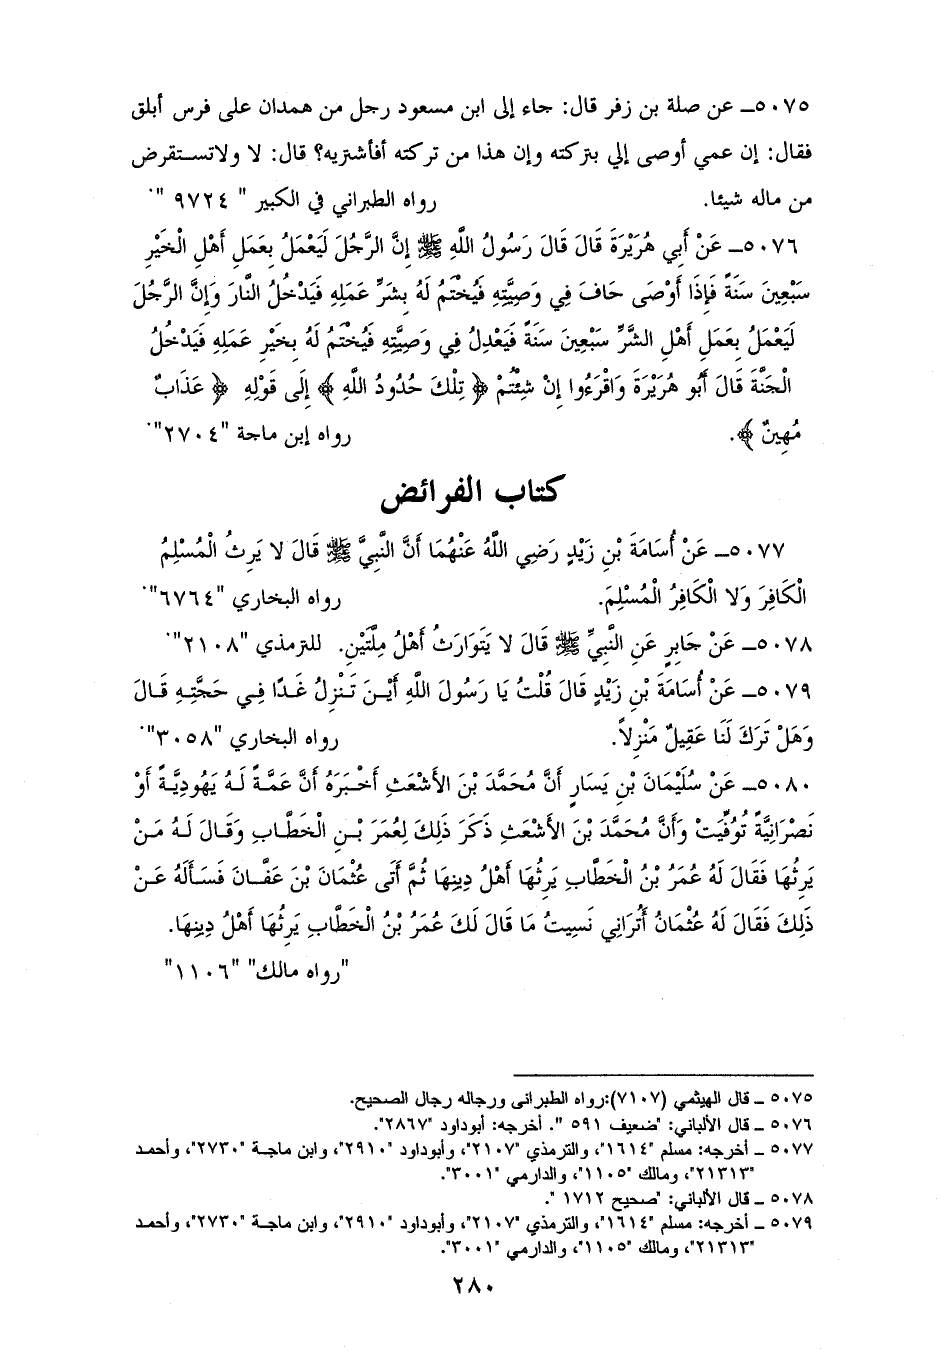 ٥٠٧٥ـ عن صلة بن زفر قال: جاء إلى ابن مسعود رجل من همدان على فرس أبلق
فقال: إن عمي أوصى إلي بتركته وإن هذا من تركته أفأشتريه؟ قال: لا ولاتستقرض
من ماله شيئا. رواه الطبراني في الكبير " ٩٧٢٤ ".
٥٠٧٦ـ عَنْ أَبِي هُرَيْرَةَ قَالَ قَالَ رَسُولُ اللَّهِ ﷺ إِنَّ الرَّجُلَ لَيَعْمَلُ بِعَمَلِ أَهْلِ الْخَيْرِ
سَبْعِينَ سَنَةً فَإِذَا أَوْصَى حَافَ فِي وَصِيَّتِهِ فَيُخْتَمُ لَهُ بِشَرِّ عَمَلِهِ فَيَدْخُلُ النَّارَ وَإِنَّ الرَّجُلَ
لَيَعْمَلُ بِعَمَلِ أَهْلِ الشَّرِّ سَبْعِينَ سَنَةً فَيَعْدِلُ فِي وَصِيَّتِهِ فَيُخْتَمُ لَهُ بِخَيْرِ عَمَلِهِ فَيَدْخُلُ
الْجَنَّةَ قَالَ أَبُو هُرَيْرَةَ وَاقْرَءُوا إِنْ شِئْتُمْ ﴿ تِلْكَ حُدُودُ اللَّهِ ﴾ إِلَى قَوْلِهِ ﴿ عَذَابٌ
مُهِينٌ ﴾. رواه إبن ماجة "٢٧٠٤".
كتاب الفرائض
٥٠٧٧ـ عَنْ أُسَامَةَ بْنِ زَيْدٍ رَضِي اللَّهُ عَنْهُمَا أَنَّ النَّبِيَّ ﷺ قَالَ لا يَرِثُ الْمُسْلِمُ
الْكَافِرَ وَلا الْكَافِرُ الْمُسْلِمَ. رواه البخاري "٦٧٦٤".
٥٠٧٨ـ عَنْ جَابِرٍ عَنِ النَّبِيِّ ﷺ قَالَ لا يَتَوَارَثُ أَهْلُ مِلَّتَيْنِ. للترمذي "٢١٠٨".
٥٠٧٩ـ عَنْ أُسَامَةَ بْنِ زَيْدٍ قَالَ قُلْتُ يَا رَسُولَ اللَّهِ أَيْنَ تَنْزِلُ غَدًا فِي حَجَّتِهِ قَالَ
وَهَلْ تَرَكَ لَنَا عَقِيلٌ مَنْزِلاً. رواه البخاري "٣٠٥٨".
٥٠٨٠ـ عَنْ سُلَيْمَانَ بْنِ يَسَارٍ أَنَّ مُحَمَّدَ بْنَ الأَشْعَثِ أَخْبَرَهُ أَنَّ عَمَّةً لَهُ يَهُودِيَّةً أَوْ
نَصْرَانِيَّةً تُوُفِّيَتْ وَأَنَّ مُحَمَّدَ بْنَ الأَشْعَثِ ذَكَرَ ذَلِكَ لِعُمَرَ بْنِ الْخَطَّابِ وَقَالَ لَهُ مَنْ
يَرِثُهَا فَقَالَ لَهُ عُمَرُ بْنُ الْخَطَّابِ يَرِثُهَا أَهْلُ دِينِهَا ثُمَّ أَتَى عُثْمَانَ بْنَ عَفَّانَ فَسَأَلَهُ عَنْ
ذَلِكَ فَقَالَ لَهُ عُثْمَانُ أَتُرَانِي نَسِيتُ مَا قَالَ لَكَ عُمَرُ بْنُ الْخَطَّابِ يَرِثُهَا أَهْلُ دِينِهَا.
"رواه مالك" "١١٠٦"
٥٠٧٥ ـ قال الهيثمي (٧١٠٧):رواه الطبرانى ورجاله رجال الصحيح.
٥٠٧٦ ـ قال الألباني: "ضعيف ٥٩١ ". أخرجه: أبوداود "٢٨٦٧".
٥٠٧٧ ـ أخرجه: مسلم "١٦١٤"، والترمذي "٢١٠٧"، وأبوداود "٢٩١٠"، وابن ماجة "٢٧٣٠"، وأحمد
"٢١٣١٣"، ومالك "١١٠٥"، والدارمي "٣٠٠١".
٥٠٧٨ ـ قال الألباني: "صحيح ١٧١٢ ".
٥٠٧٩ ـ أخرجه: مسلم "١٦١٤"، والترمذي "٢١٠٧"، وأبوداود "٢٩١٠"، وابن ماجة "٢٧٣٠"، وأحمد
"٢١٣١٣"، ومالك "١١٠٥"، والدارمي "٣٠٠١".
٢٨٠